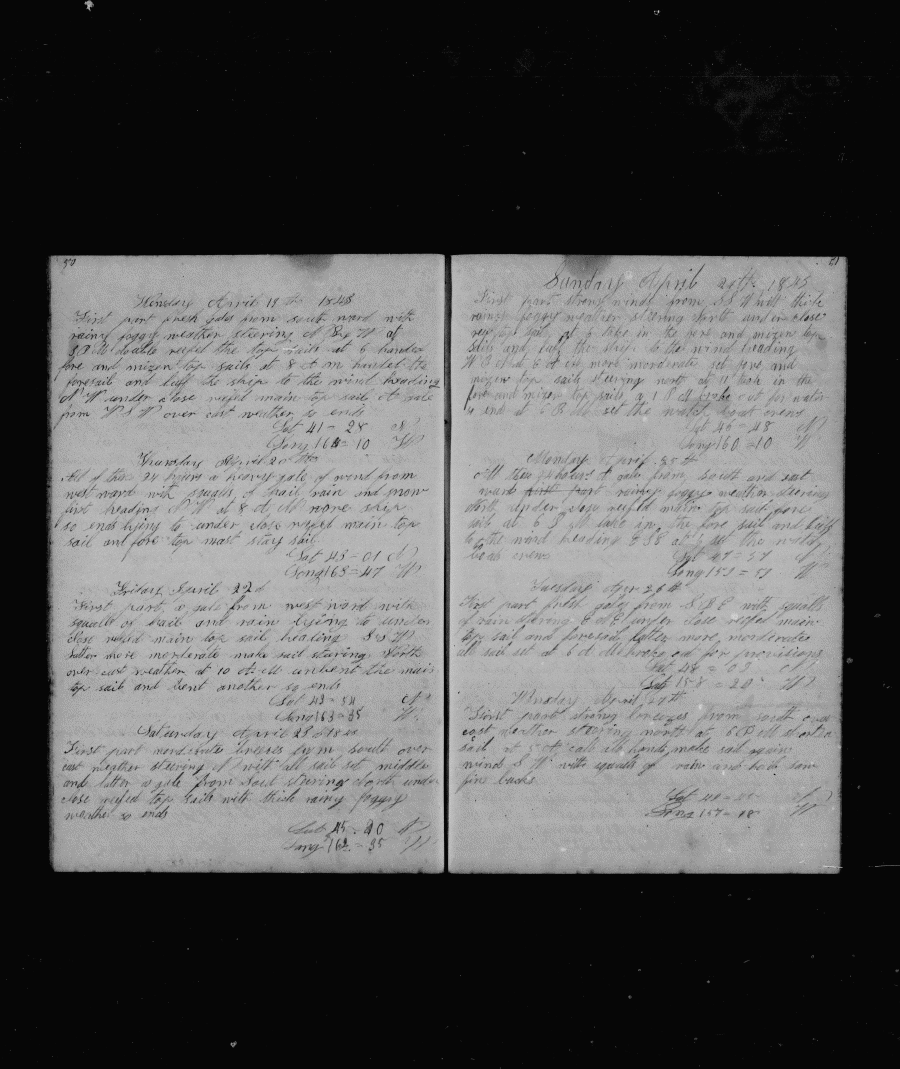 50
April 19th 1848
First part fresh gales from south ward with
rainy foggy weather steering N By W at
3 P M double reefed the top sails at 6 handed
fore and mizen top sails at 8 A M handed the
foresail and luff the ship to the wind heading
N W under close reefed main top sail
from W S W over cast weather so ends
Lat 41 = 28 N
Long 16 = 10 W
Thursday April 20th
All of this 24 hours a heavy gale of wind from
west ward with squalls of hail rain and snow
first heading N W at 8 A M wore ship
so ends lying to under close reefed main top
sail and fore top mast stay sail
Lat 43 = 01 N
Long 163 = 47 W
Friday April 22d
First part a gale from west ward with
squalls of hail and rain lying to under
close reefed main top sail heading
latter more morderate make sail steering North
over cast weather at 10 A M unbent the main
top sail and bent another so ends
Lat 43 = 54 N
Long 163 = 35 W
Saturday April 23d
First part morderate breezes from south over
cast weather steering N with all sail set middle
and latter a gale from South steering North under
close reefed top sails with thick rainy foggy
weather so ends
Lat 45 = 20 N
Long 162 = 35 W
51
Sunday April 24th
First part strong winds from S S W with thick
rainy foggy weather steering North under close
reefed top sails at 6 take in the fore and mizen top
sails and luff the ship to the wind heading
W at 6 A M more morderate set fore and
mizen top sails steering north at 11 took in the
fore and mizen top sails
set the watch
Lat 46 = 48 N
Long 160 = 10 W
Monday April 25th
All these 24 hours a gale from South and east
ward first part rainy foggy weather steering
North under close reefed main top sail fore
sail at 6 P M take in the fore sail and luff
to the wind heading at 8 set the watch
Lat 47 = 57 N
Long 159 = 51 W
Tuesday Apr 26th
First part fresh gales from with squalls
of rain steering under close reefed main
top sail and foresail latter more morderate
all sail set at 6 A M for provisions
Lat 48 = 02 N
158 = 20 W
April 27th
First part strong breezes from south and
east weather steering north at 6 P M shorten
sail at 5 A M call all hands make sail again
winds S W with squalls of rain and hail saw
fin backs
Lat
Long 157 = 18 W